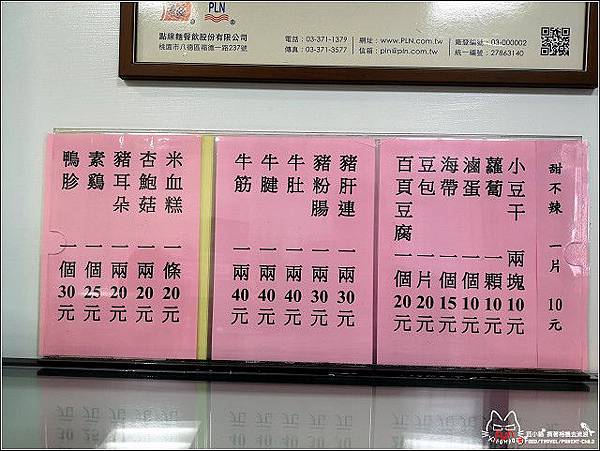 PLN
點線麵餐飲股份有限公司
桃園市八德區福德一路237號
電話:03-371-1379
傳真:03-371-3577
網址:www.PLN.com.tw
信箱:pln@pln.com.tw
統一編號:27863140
甜不辣 一片 10元
小豆干 兩塊10元
蘿蔔 一顆10元
滷蛋 一個10元
海帶 一個15元
豆包 一片20元
百頁豆腐 一個20元
豬肝連 一兩30元
豬粉腸 一兩30元
牛肚 一兩40元
牛腱 一兩40元
牛筋 一兩40元
米血糕 一條20元
杏鮑菇 一兩20元
豬耳朵 一兩20元
素雞 一個25元
鴨胗 一個30元
FOOD/TRAVEL/PARENT-CHILD